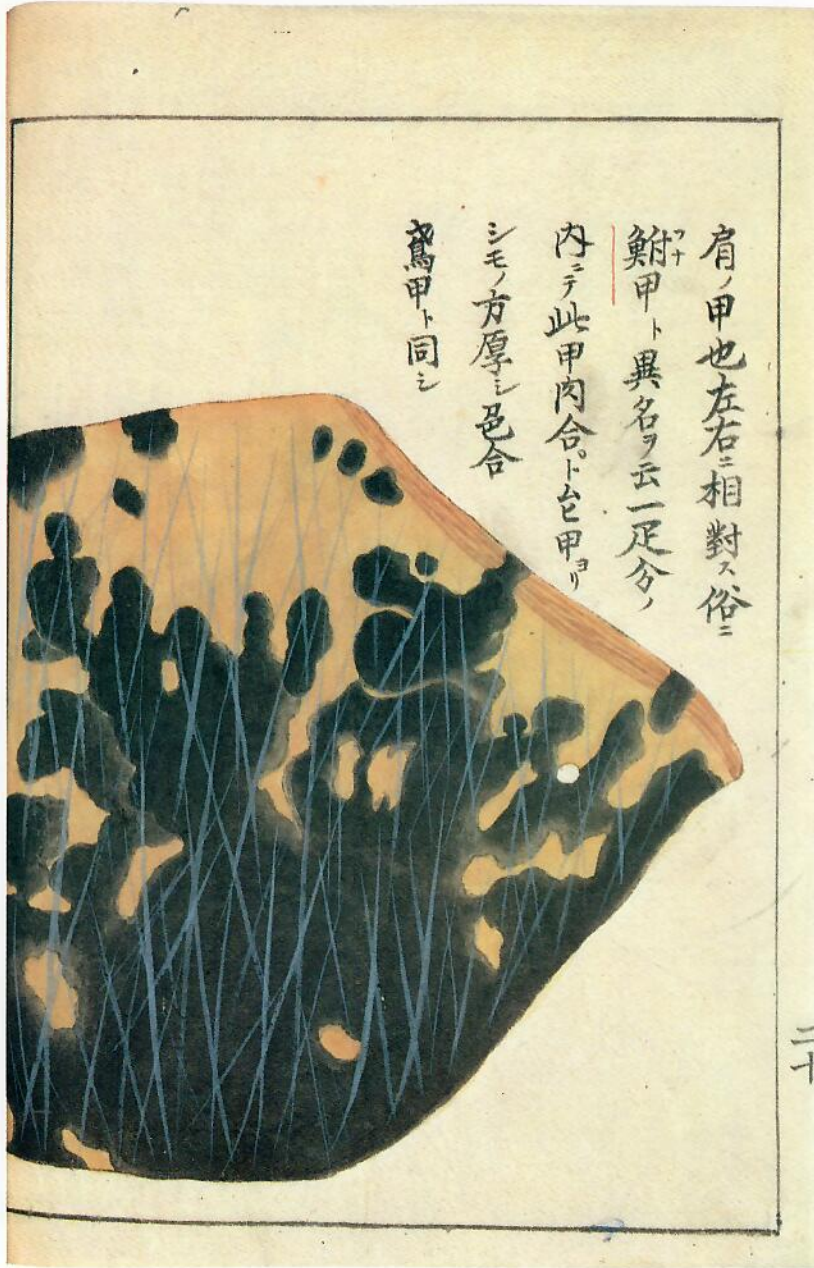 肩ノ甲也左右ニ相對ス俗ニ
鮒甲ト異名ヲ云一疋分ノ
フナ
内ニテ此甲肉合トムヒ甲ヨリ
シモノ方厚シ色合
鳶甲ト同シ
二十